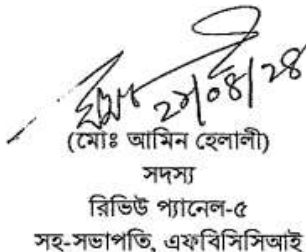 ২১/০৪/২৪
(মোঃ আমিন হেলালী)
সদস্য
রিভিউ প্যানেল-৫
সহ-সভাপতি, এফবিসিসিআই